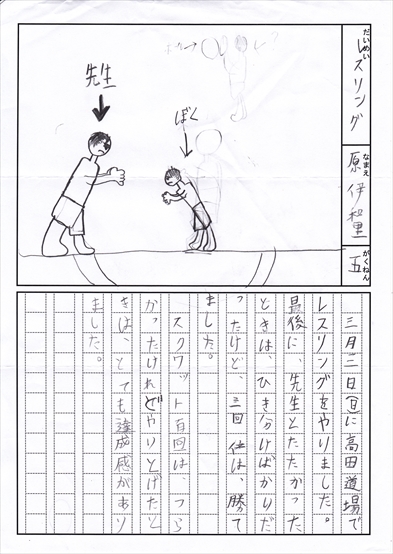 だいめい
レスリング
なまえ
原 伊和里
がくねん
五
先生
ぼく
三月三日(日)に高田道場で
レスリングをやりました。
最後に、先生とたたかった
ときは、ひき分けばかりだ
ったけど、三回仕は、勝て
ました。
スクワット百回は、つら
かったけれどやりとげたと
きは、とても達成感があり
ました。